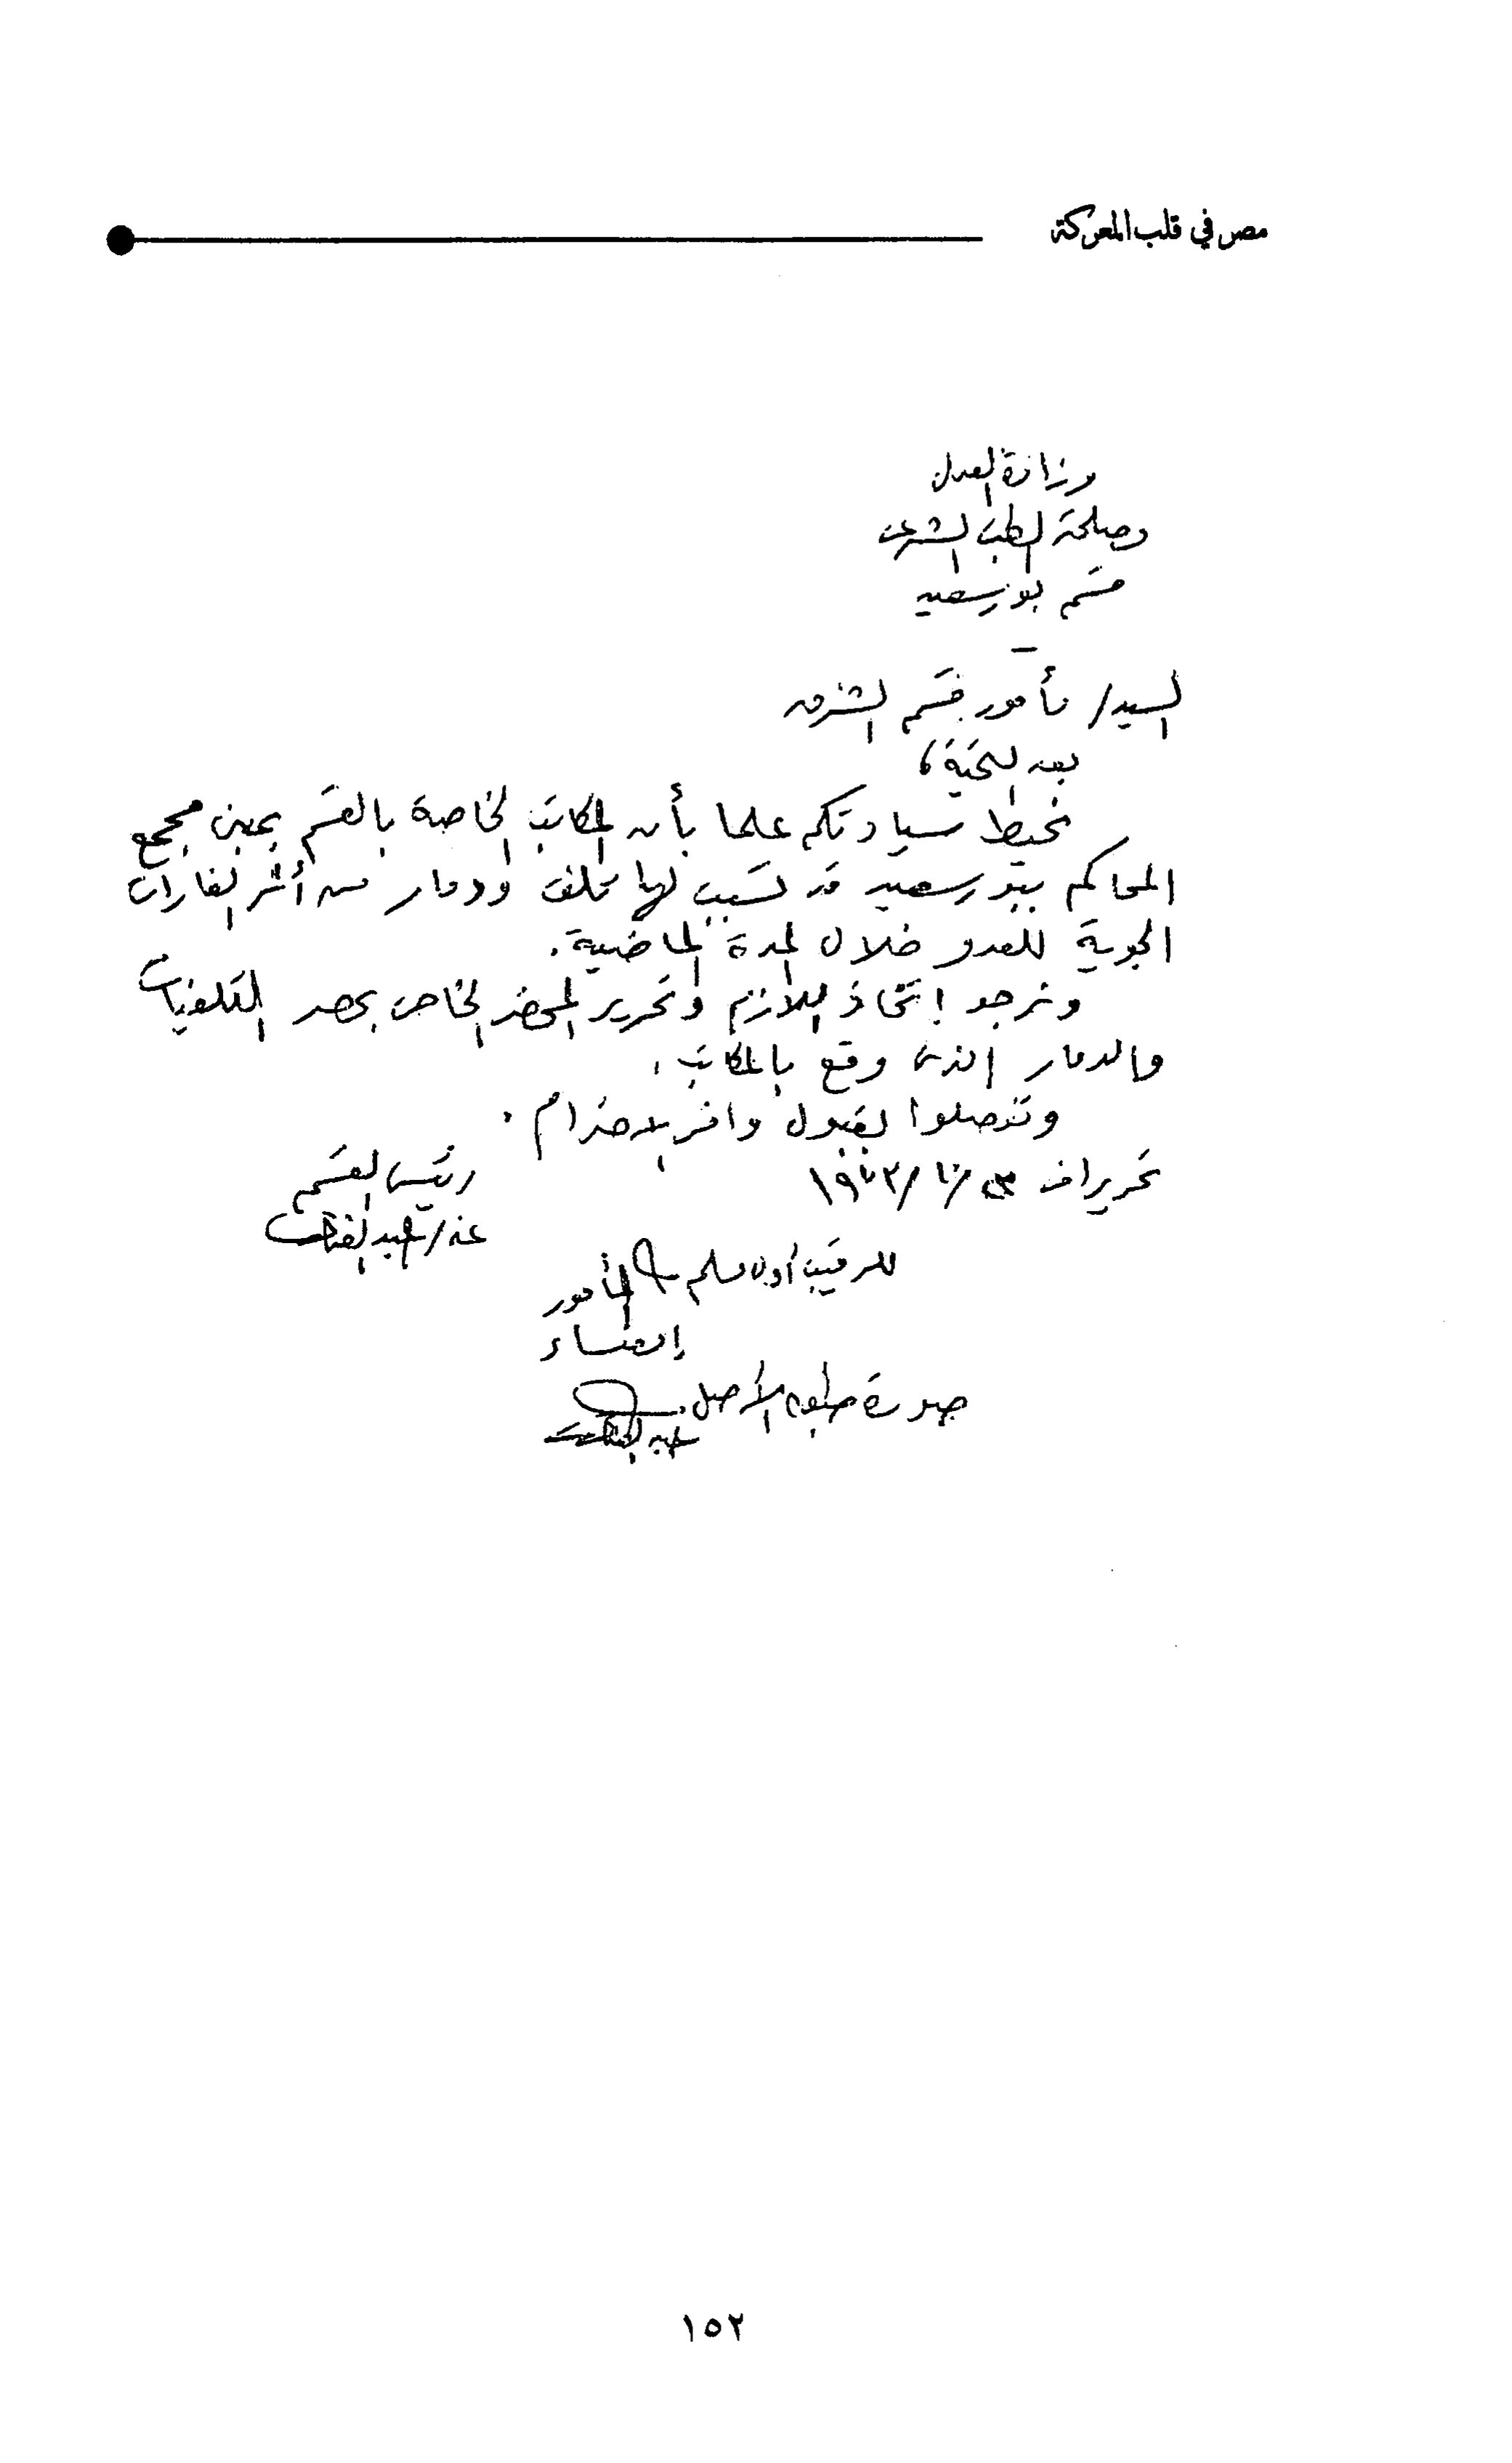 مصر في قلب المعركة
وزارة العدل
مصلحة الطب الشرعى
قسم بورسعيد
السيد/ مأمور قسم الشرق
بعد التحية،
نحيط سيادتكم علما بأن المكاتب الخاصة بالقسم بمبنى مجمع
المحاكم ببورسعيد قد تسبب لها تلف ودمار من أثر الغارات
الجوية للعدو خلال المدة الماضية.
ونرجو إتخاذ اللازم وتحرير المحضر الخاص بحصر التلفيات
والدمار الذى وقع بالمكاتب.
وتفضلوا بقبول وافر الاحترام.
تحريرا فى ٢٣/١٠/١٩٧٣
رئيس القسم
عنه/ عبد الفتاح
للرقيب أول مسلم المأمور
إمضاء
صورة طبق الأصل
١٥٢